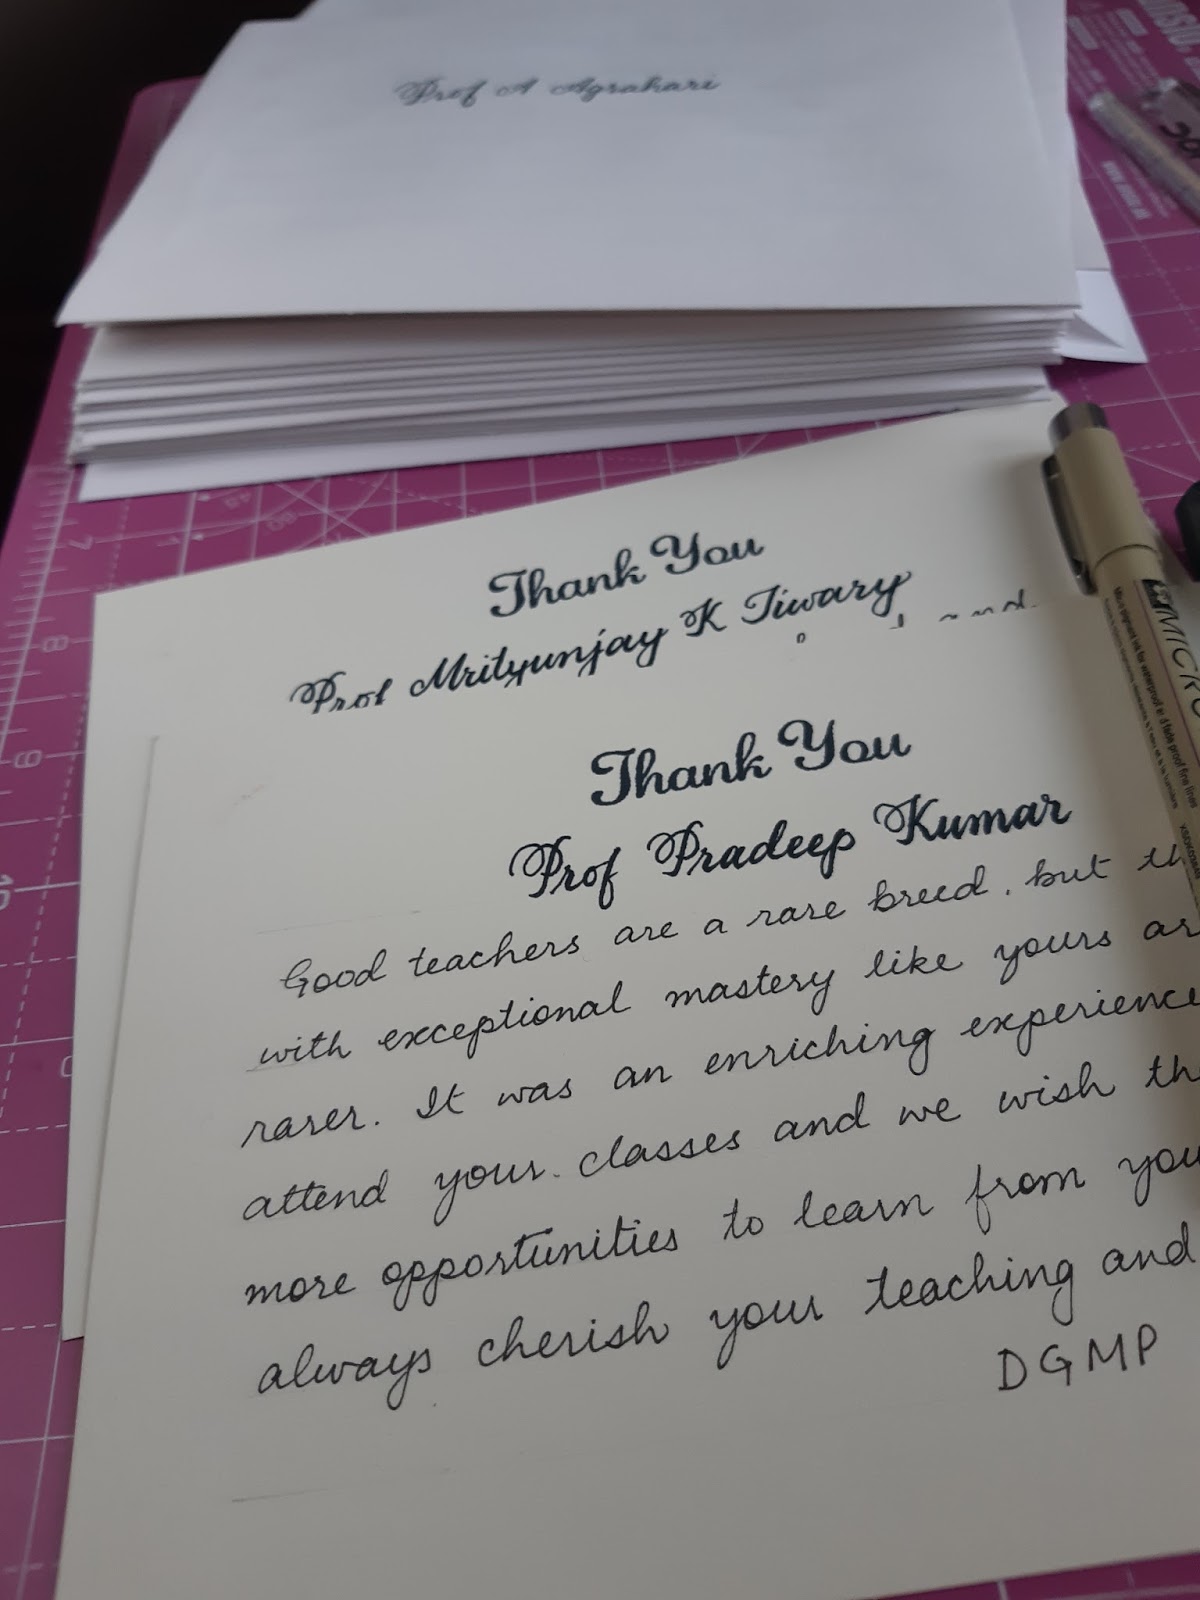 Prof A Agrahari
Thank You
Prof Mrityunjay K Tiwary
and
Thank You
Prof Pradeep Kumar
Good teachers are a rare breed, but
with exceptional mastery like yours
rarer. It was an enriching experience
attend your classes and we wish
more opportunities to learn from you
always cherish your teaching and
DGMP
8
9
10
7